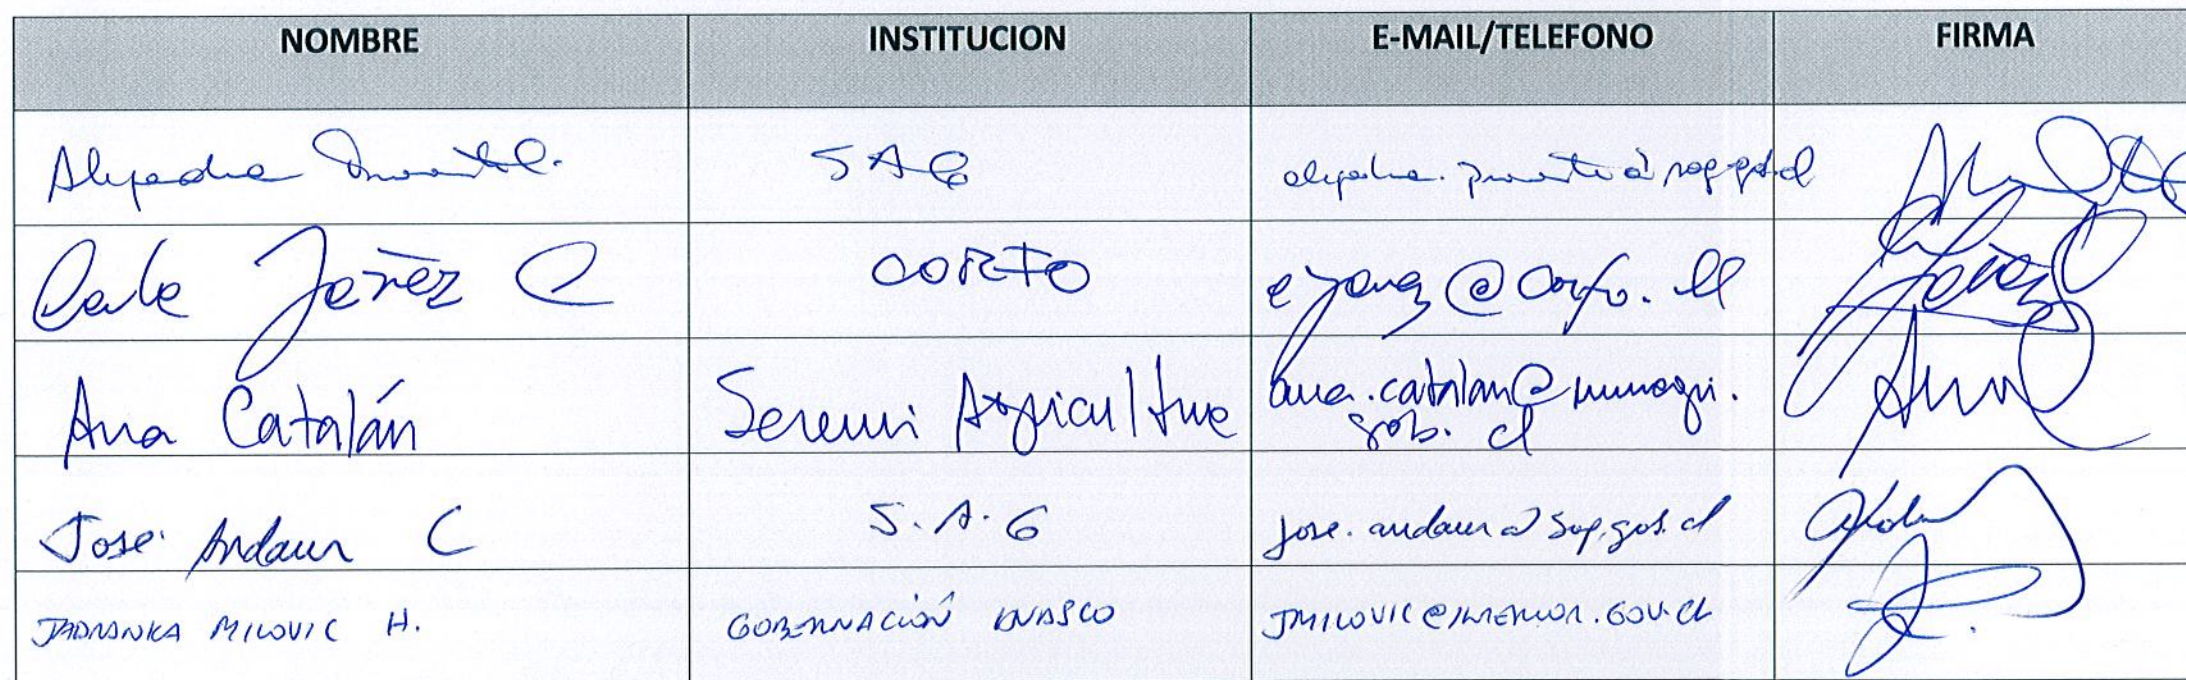 NOMBRE INSTITUCION E-MAIL/TELEFONO FIRMA
SAG
Yañez C CORFO @corfo.cl
Ana Catalán Seremi Agricultura ana.catalan@minagri.
gob.cl
Jose Andaur C S.A.G jose.andaur@sag.gob.cl
JADRANKA MILOVIC H. GOBERNACIÓN HUASCO JMILOVIC@INTERIOR.GOV.CL